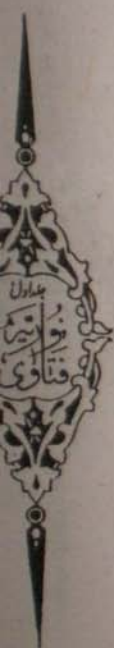 جلد اول
فتاوی نوریہ